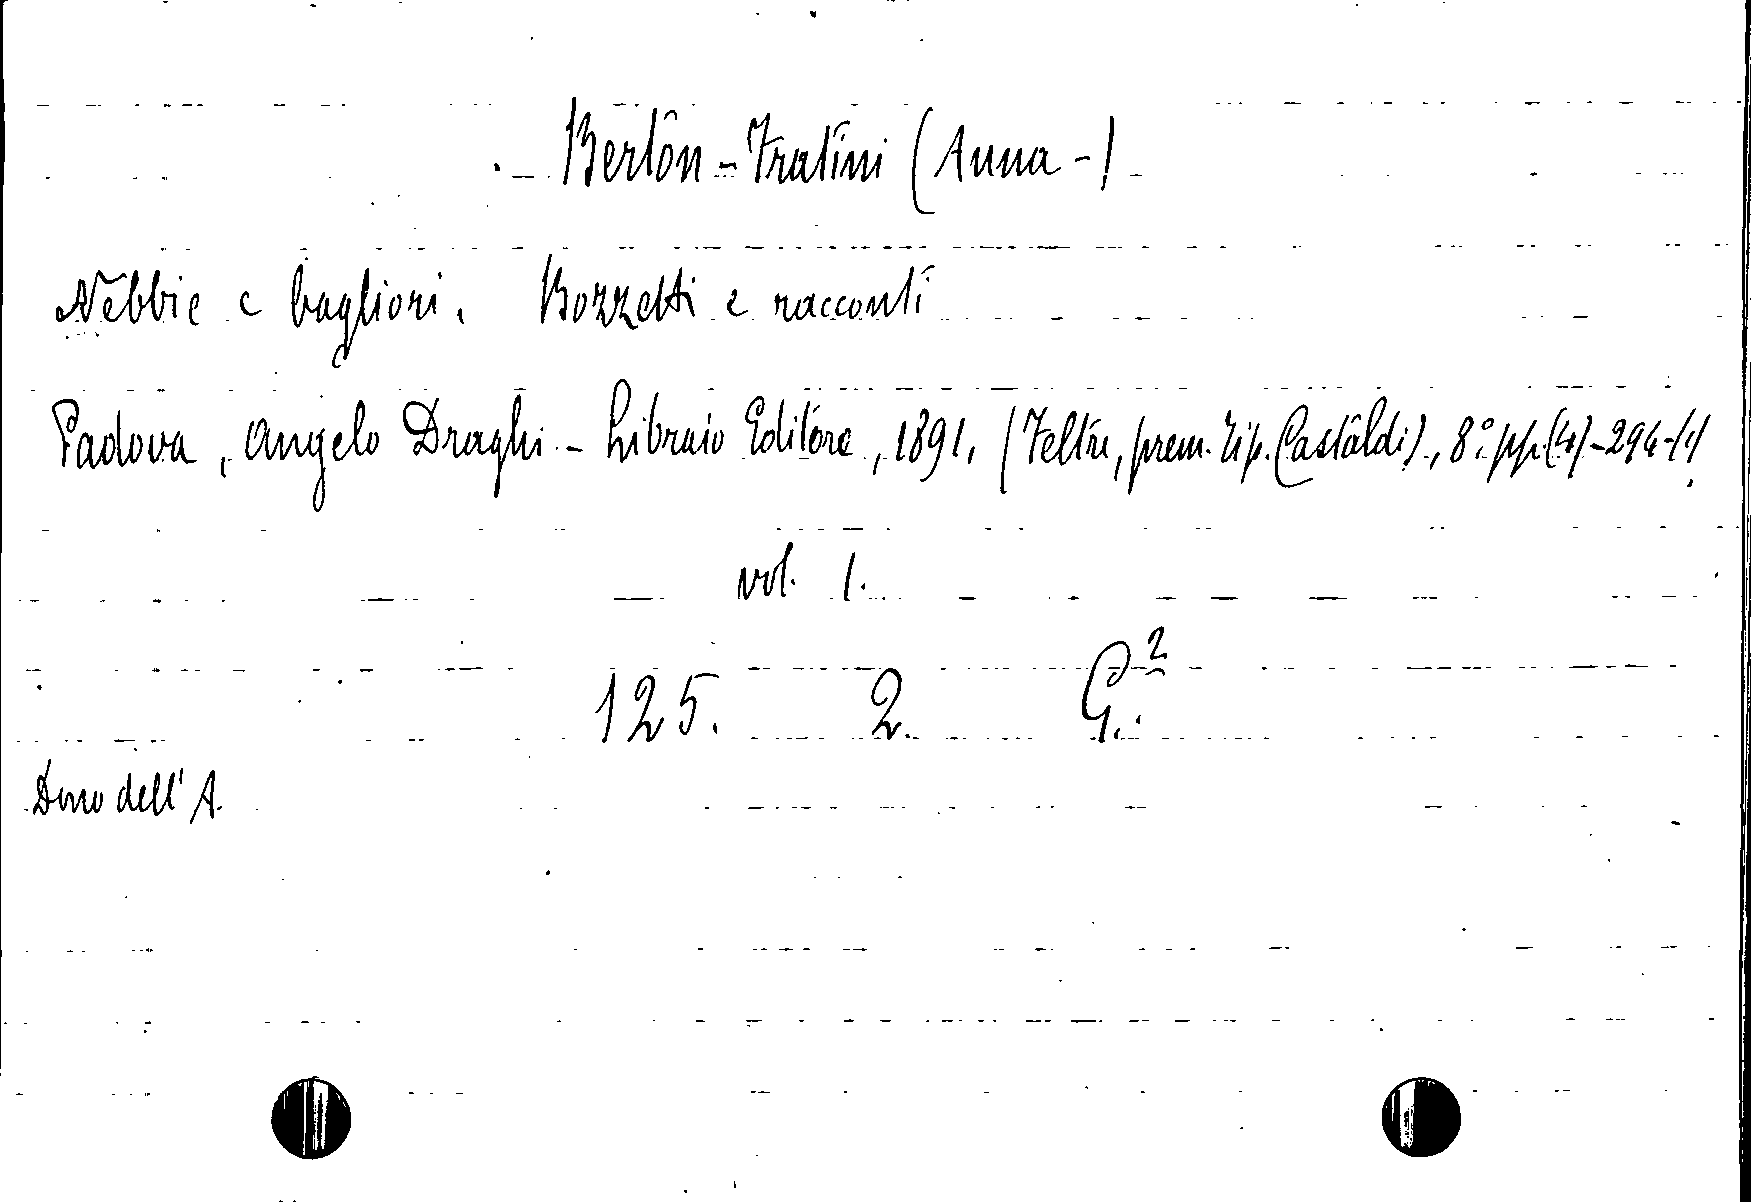 Bertòn-Fratini (Anna-)
Nebbie e bagliori. Bozzetti e racconti
Padova, Angelo Draghi-Libraio Editore, 1891. (Feltre, prem. tip. Castaldi), 8° pp.(4)-294-(
vol. 1.
125. 2. G.²
Dono dell'A.